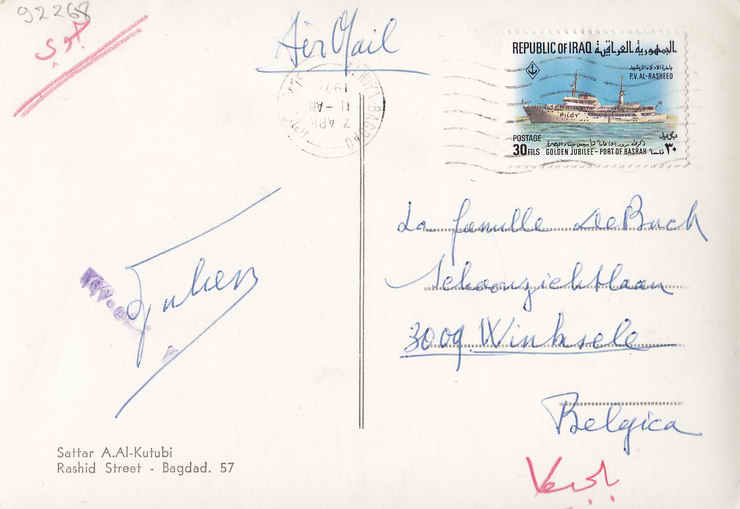 92268
جوي
Air Mail
REPUBLIC OF IRAQ الجمهورية العراقية
P.V. AL-RASHEED
PILOT
POSTAGE
30 FILS ٣٠
GOLDEN JUBILEE - PORT OF BASRAH
BAGHDAD
11-AM
7 APR
La famille De Buck
Schoonzichtlaan
3009 Winksele
Belgica
Julien
Sattar A.Al-Kutubi
Rashid Street - Bagdad. 57